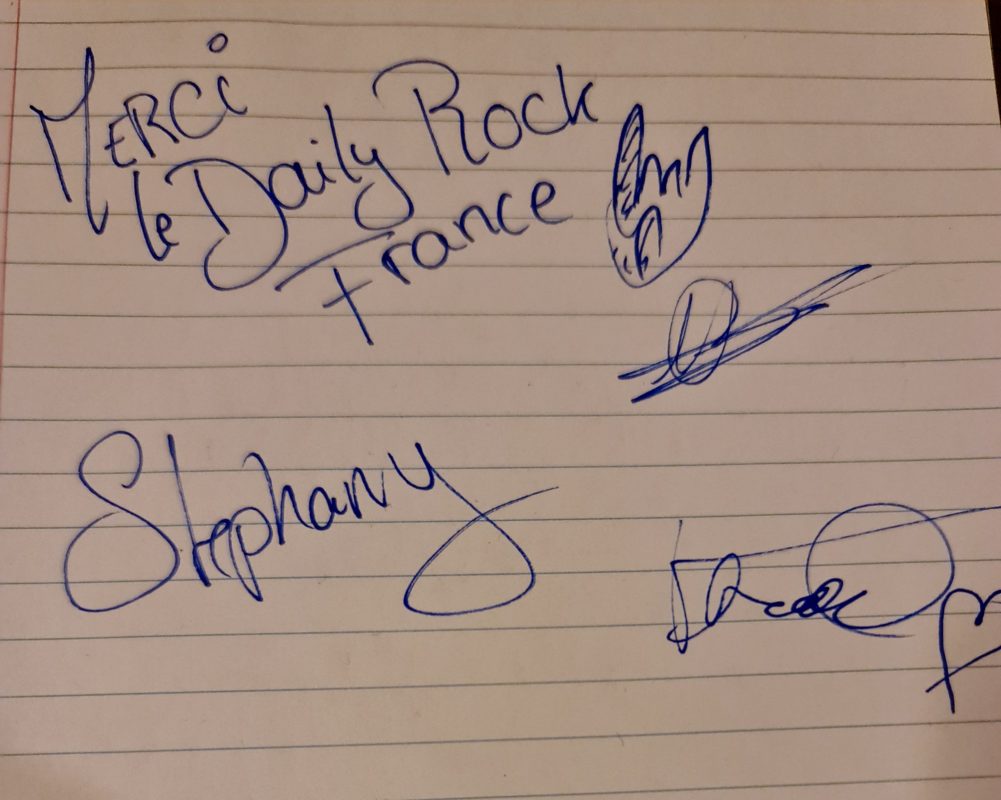 MERCi
le Daily Rock
France
Stephany